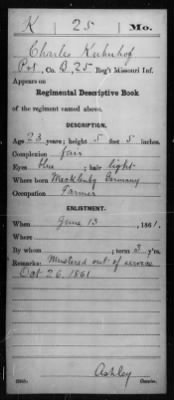 K 25 Mo.
Charles Kuhnhof
Pvt., Co. B, 25 Reg't Missouri Inf.
Appears on
Regimental Descriptive Book
of the regiment named above.
DESCRIPTION.
Age 23 years; height 5 feet 5 inches.
Complexion fair
Eyes blue; hair light
Where born Mecklenbg Germany
Occupation Farmer
ENLISTMENT.
When June 13, 1861.
Where
By whom ; term 3 y'rs.
Remarks: Mustered out of service
Oct 26, 1861
Ashley
Copyist.